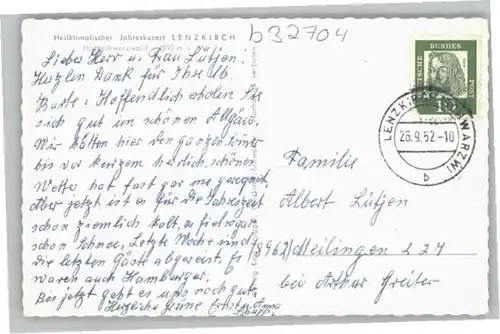 Heilklimatischer Jahreskurort LENZKIRCH
Hochschwarzwald 810 m
b32704
Liebe Herr u. Frau Lütjen!
Herzlen Dank für Ihre lb.
Karte. Hoffendlich erholen Sie
sich gut im schönen Allgäu.
Wir hatten hier den ganzen Sommer
bis vor kurzem herlich schönes
Wetter hat fast gar nie geregnet.
Aber jetzt ist es für die Jahreszeit
schon ziemlich kalt, es fiel sogar
schon Schnee. Letzte Woche sind
die letzten Gäste abgereist. Es
waren auch Hamburger.
Bis jetzt geht es uns noch gut.
Herzliche Grüße Anna
DEUTSCHE BUNDESPOST
LENZKIRCH (SCHWARZW)
26.9.62-10
b
Familie
Albert Lütjen
(8962) Meilingen 27
bei Arthur Greiter